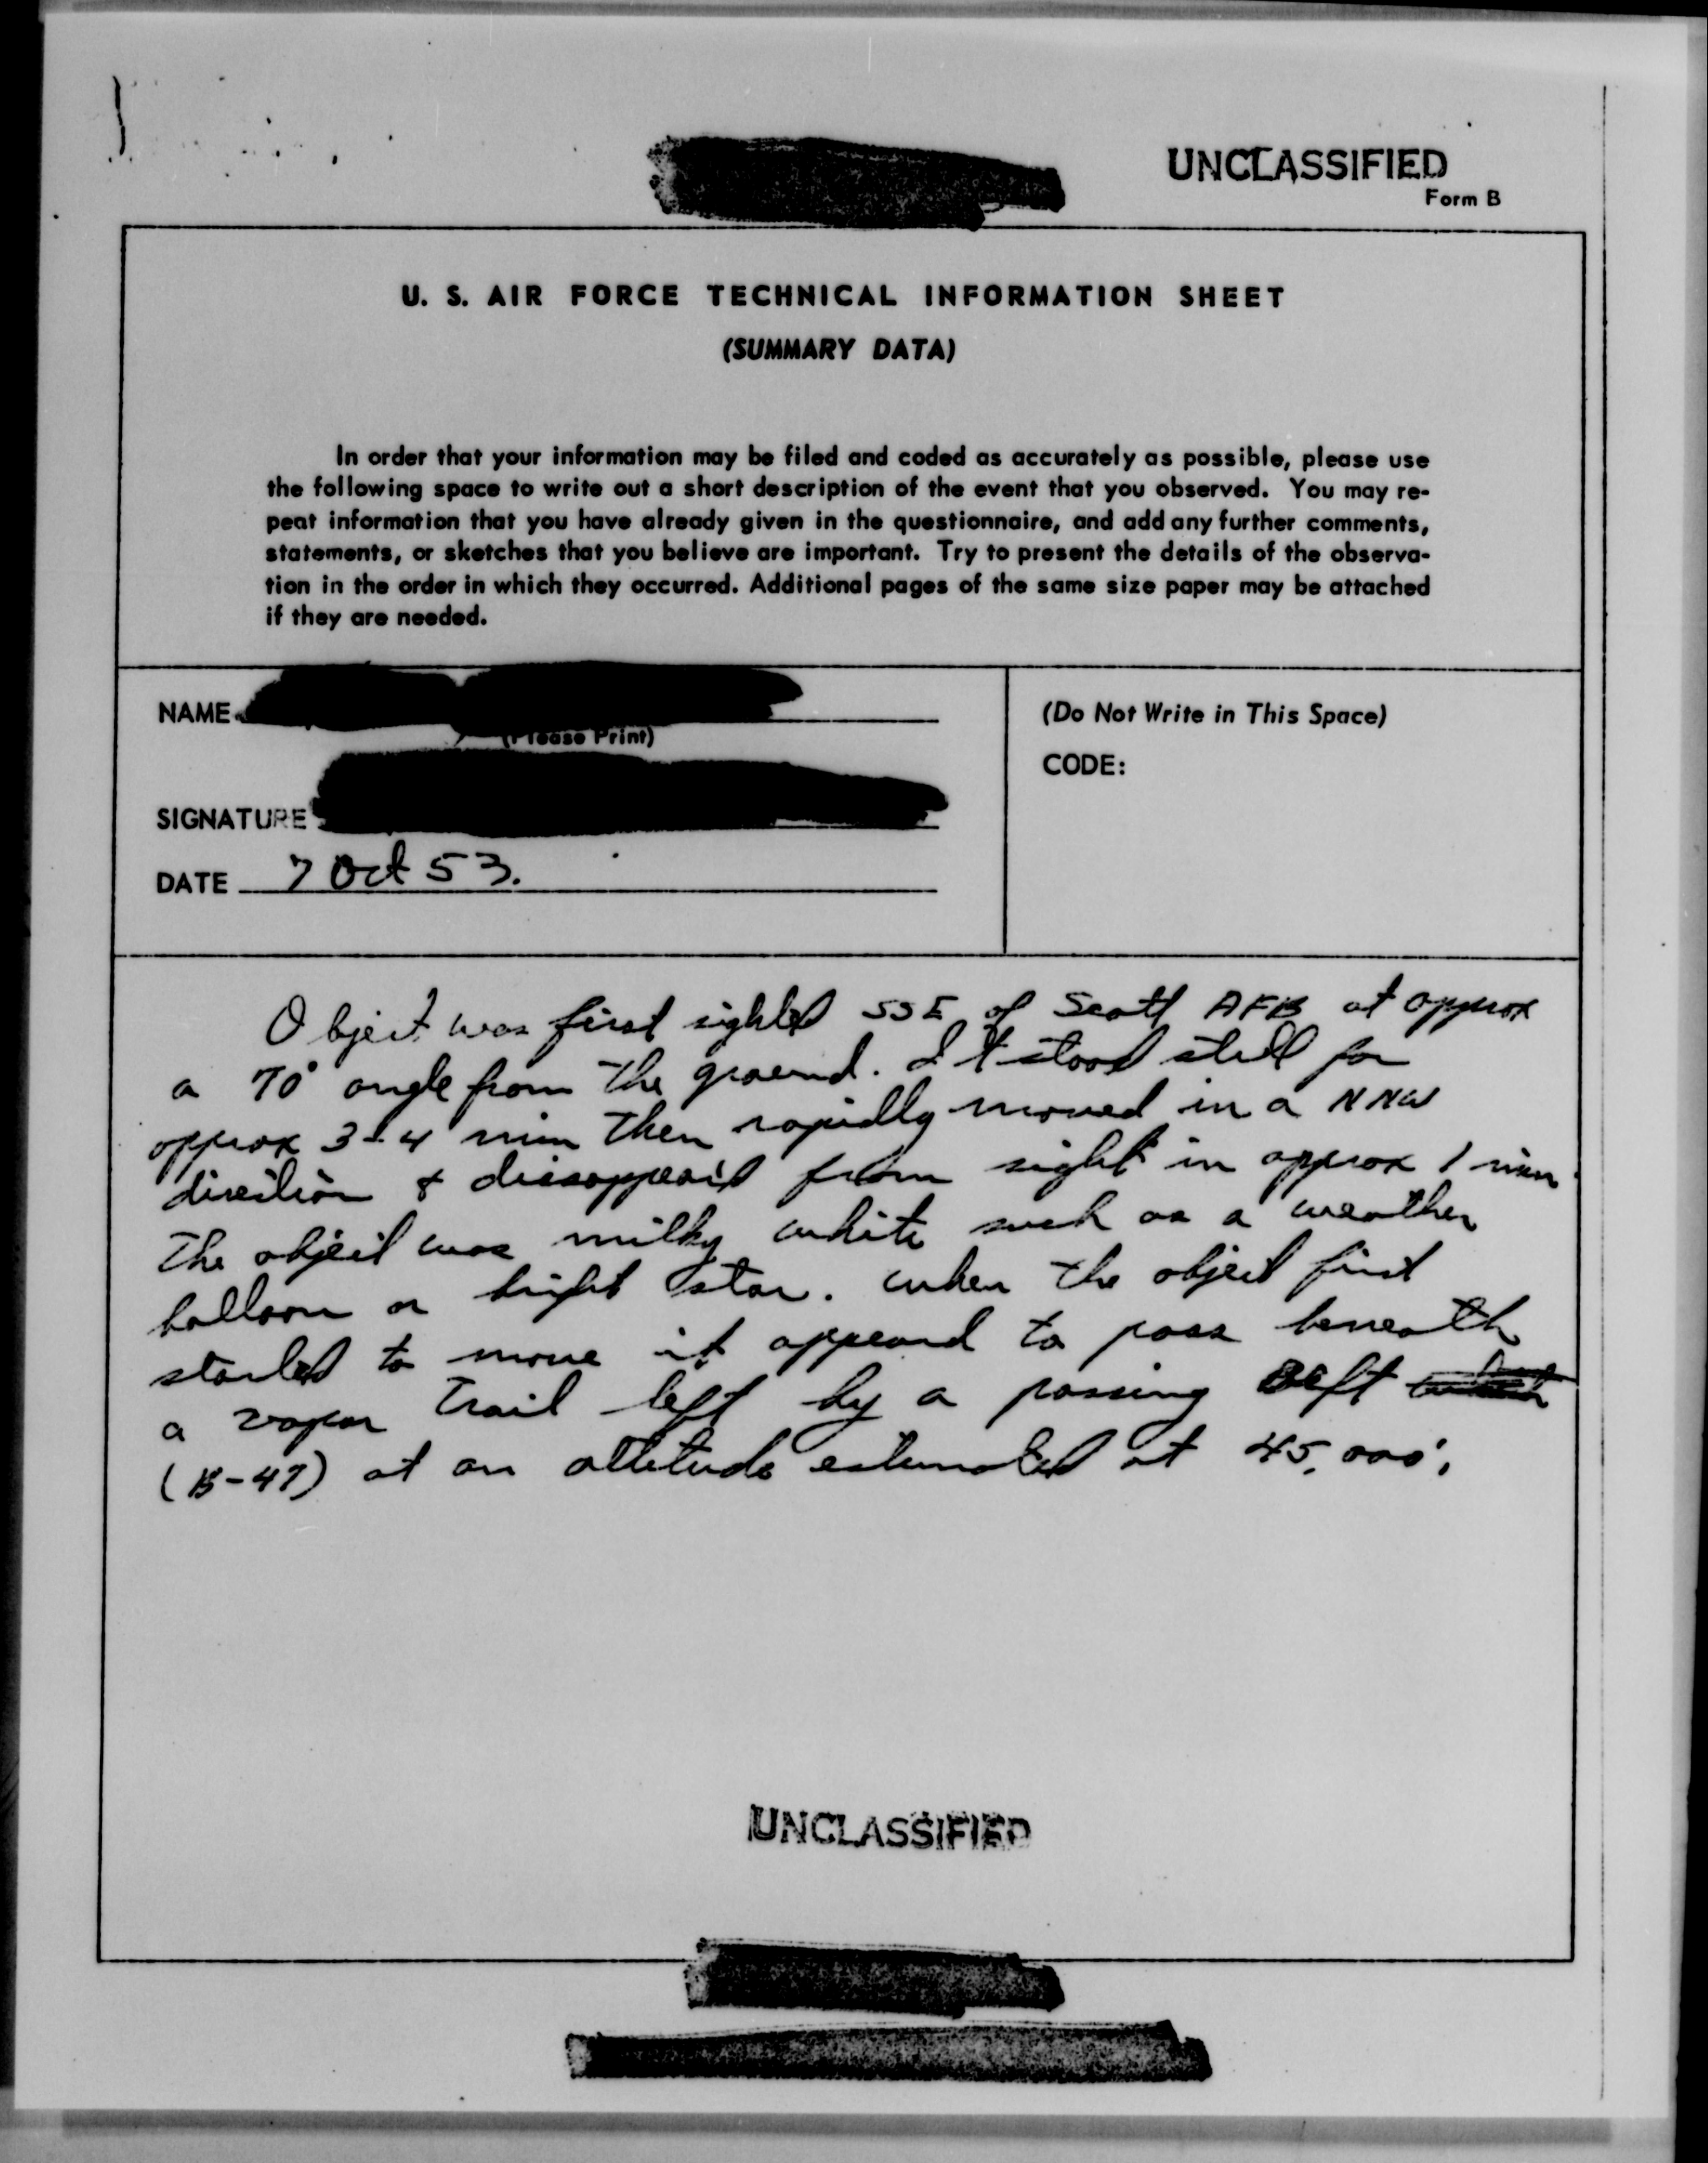 UNCLASSIFIED
Form B
U. S. AIR FORCE TECHNICAL INFORMATION SHEET
(SUMMARY DATA)
In order that your information may be filed and coded as accurately as possible, please use
the following space to write out a short description of the event that you observed. You may re-
peat information that you have already given in the questionnaire, and add any further comments,
statements, or sketches that you believe are important. Try to present the details of the observa-
tion in the order in which they occurred. Additional pages of the same size paper may be attached
if they are needed.
NAME
(Please Print)
SIGNATURE
DATE 7 Oct 53.
(Do Not Write in This Space)
CODE:
Object was first sighted SSE of Scott AFB at approx
a 70° angle from the ground. It stood still for
approx 3-4 min then rapidly moved in a NNW
direction & from sight in approx 1 min.
The object was milky white such as a weather
balloon or bright star. When the object first
started to move it appeard to pass beneath
a vapor trail left by a passing
(B-47) at an altitude estimated at 45,000'.
UNCLASSIFIED